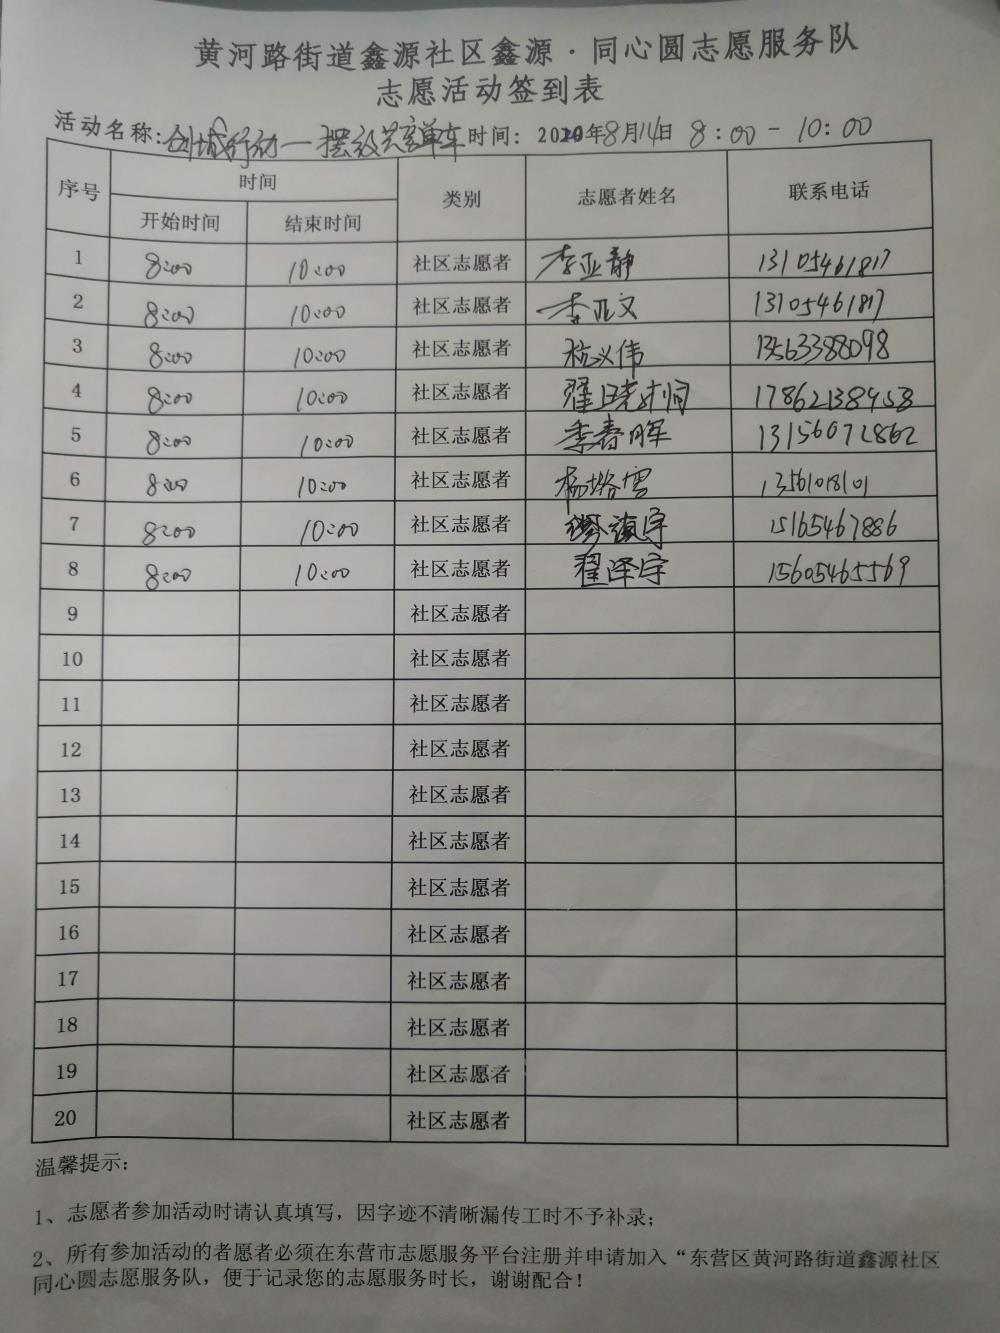 黄河路街道鑫源社区鑫源·同心圆志愿服务队
志愿活动签到表
活动名称:创城行动一摆放共享单车 时间: 2020年8月14日 8:00-10:00
序号 时间 类别 志愿者姓名 联系电话
开始时间 结束时间
1 8:00 10:00 社区志愿者 李亚静 13105461817
2 8:00 10:00 社区志愿者 李亚文 13105461817
3 8:00 10:00 社区志愿者 杭义伟 13563388098
4 8:00 10:00 社区志愿者 翟 17862138953
5 8:00 10:00 社区志愿者 李春晖 13156072862
6 8:00 10:00 社区志愿者 杨 雪 13561018101
7 8:00 10:00 社区志愿者 15165467886
8 8:00 10:00 社区志愿者 翟泽宇 15605465569
9 社区志愿者
10 社区志愿者
11 社区志愿者
12 社区志愿者
13 社区志愿者
14 社区志愿者
15 社区志愿者
16 社区志愿者
17 社区志愿者
18 社区志愿者
19 社区志愿者
20 社区志愿者
温馨提示:
1、志愿者参加活动时请认真填写，因字迹不清晰漏传工时不予补录；
2、所有参加活动的者愿者必须在东营市志愿服务平台注册并申请加入“东营区黄河路街道鑫源社区
同心圆志愿服务队，便于记录您的志愿服务时长，谢谢配合！